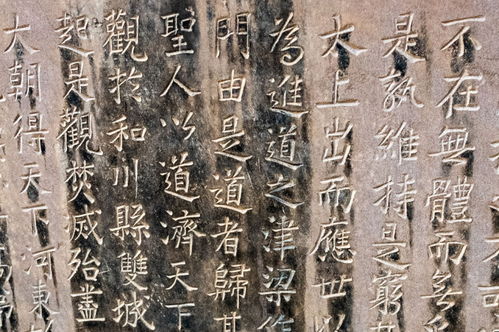 不在無體而無
是孰維持是窮其
太上出而應世以
為進道之津梁
門由是道者歸其
聖人以道濟天下
觀於和川縣雙城
起是觀焚滅殆盡
大朝得天下河東